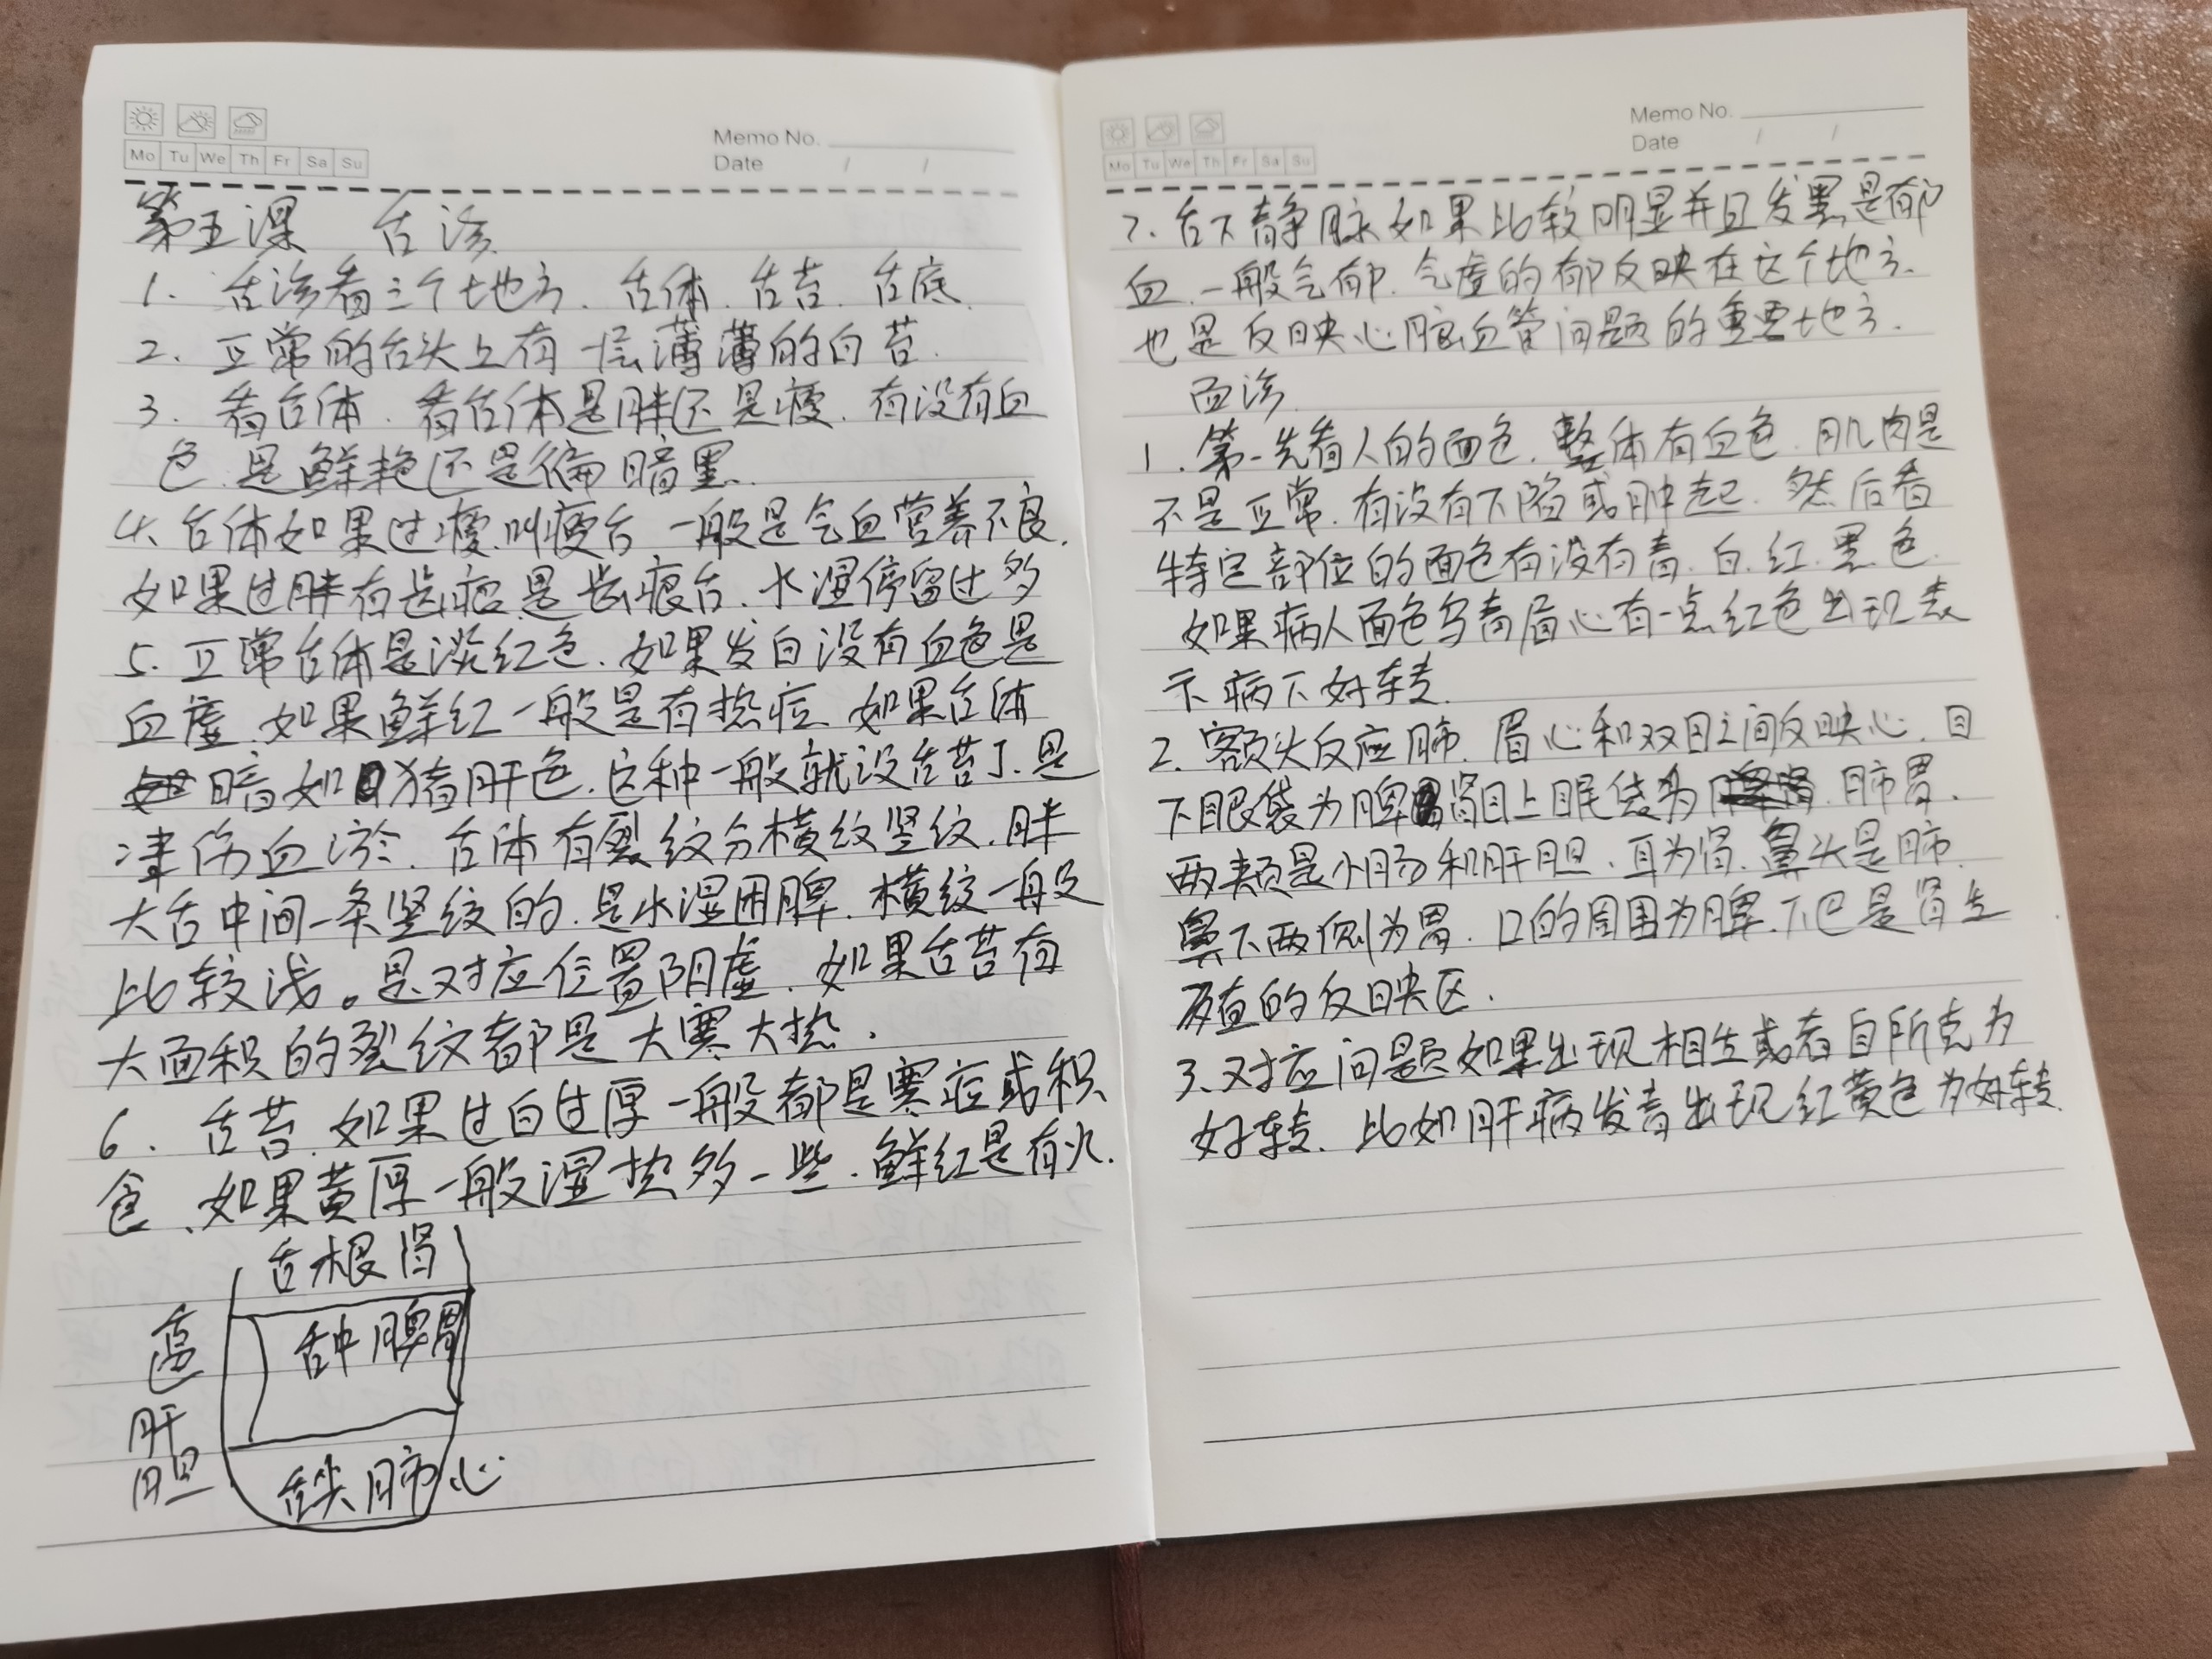 Mo Tu We Th Fr Sa Su
Memo No.
Date / /
第五课 舌诊
1. 舌诊看三个地方. 舌体. 舌苔. 舌底.
2. 正常的舌头上有一层薄薄的白苔.
3. 看舌体. 看舌体是胖还是瘦. 有没有血
色. 是鲜艳还是偏暗黑.
4. 舌体如果过瘦.叫瘦舌 一般是气血营养不良.
如果过胖有齿痕.是齿痕舌. 水湿停留过多
5. 正常舌体是淡红色. 如果发白没有血色是
血虚. 如果鲜红一般是有热症. 如果舌体
暗如猪肝色. 这种一般就没舌苔了. 是
津伤血淤. 舌体有裂纹分横纹竖纹. 胖
大舌中间一条竖纹的. 是水湿困脾. 横纹一般
比较浅。是对应位置阴虚. 如果舌苔有
大面积的裂纹都是大寒大热.
6. 舌苔. 如果过白过厚一般都是寒症或积
食. 如果黄厚一般湿热多一些. 鲜红是有火.
舌根肾
舌中脾胃
舌边
肝
胆
舌尖肺心
Mo Tu We Th Fr Sa Su
Memo No.
Date / /
7. 舌下静脉如果比较明显并且发黑是郁
血. 一般气郁. 气虚的郁反映在这个地方.
也是反映心脑血管问题的重要地方.
面诊.
1. 第一先看人的面色. 整体有血色. 肌肉是
不是正常. 有没有下陷或肿起. 然后看
特定部位的面色有没有青. 白. 红. 黑色.
如果病人面色乌青眉心有一点红色出现表
示病下好转.
2. 额头反应肺. 眉心和双目之间反映心. 目
下眼袋为脾肾目上眼袋为 肺胃.
两颊是小肠和肝胆. 耳为肾. 鼻头是肺.
鼻下两侧为胃. 口的周围为脾. 下巴是肾生
殖的反映区.
3. 对应问题如果出现相生或者自所克为
好转. 比如肝病发青出现红黄色为好转.